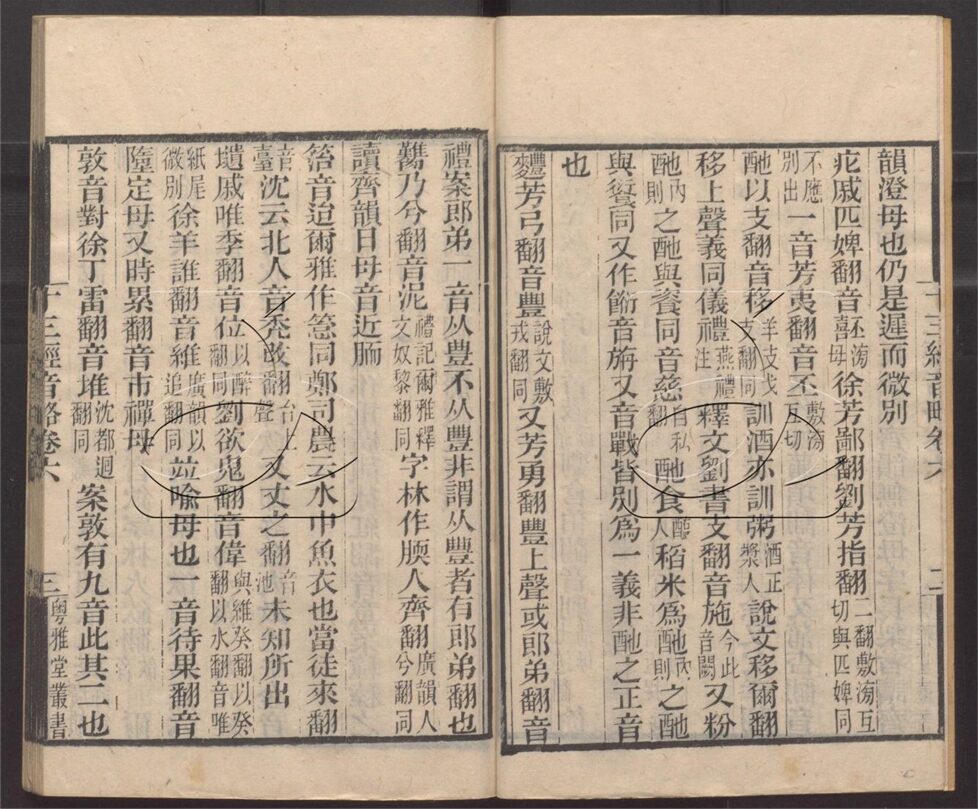 韻澄母也仍是遲而微別
疕戚匹婢翻音嚭滂母徐芳鄙翻劉芳指翻二翻敷滂互切與匹婢同
不應別出一音芳夷翻音丕敷滂互切
酏以支翻音移羊支弋支翻同訓酒亦訓粥酒正漿人說文移爾翻
移上聲義同儀禮燕禮注釋文劉書支翻音施今此音闕又粉
酏內則之酏與餈同音慈自私翻酏食醢人稻米爲酏內則之酏
與餐同又作䬳音旃又音戰皆別爲一義非酏之正音
也
麷芳弓翻音豐說文敷戎翻同又芳勇翻豐上聲或郎弟翻音
禮案郎弟一音从豊不从豐非謂从豐者有郎弟翻也
臡乃兮翻音泥禮記爾雅釋文奴黎翻同字林作腝人齊翻廣韻人兮翻同
讀齊韻日母音近胹
箈音迨爾雅作䈚同鄭司農云水中魚衣也當徒來翻
音臺沈云北人音禿改翻台上聲又丈之翻音池未知所出
壝戚唯季翻音位以醉翻同劉欲鬼翻音偉與維癸翻以癸翻以水翻音唯
紙尾微別徐羊誰翻音維廣韻以追翻同竝喻母也一音待果翻音
墮定母又時累翻音市禪母
敦音對徐丁雷翻音堆沈都迴翻同案敦有九音此其二也
十三經音略卷六
二
十三經音略卷六
三
粵雅堂叢書